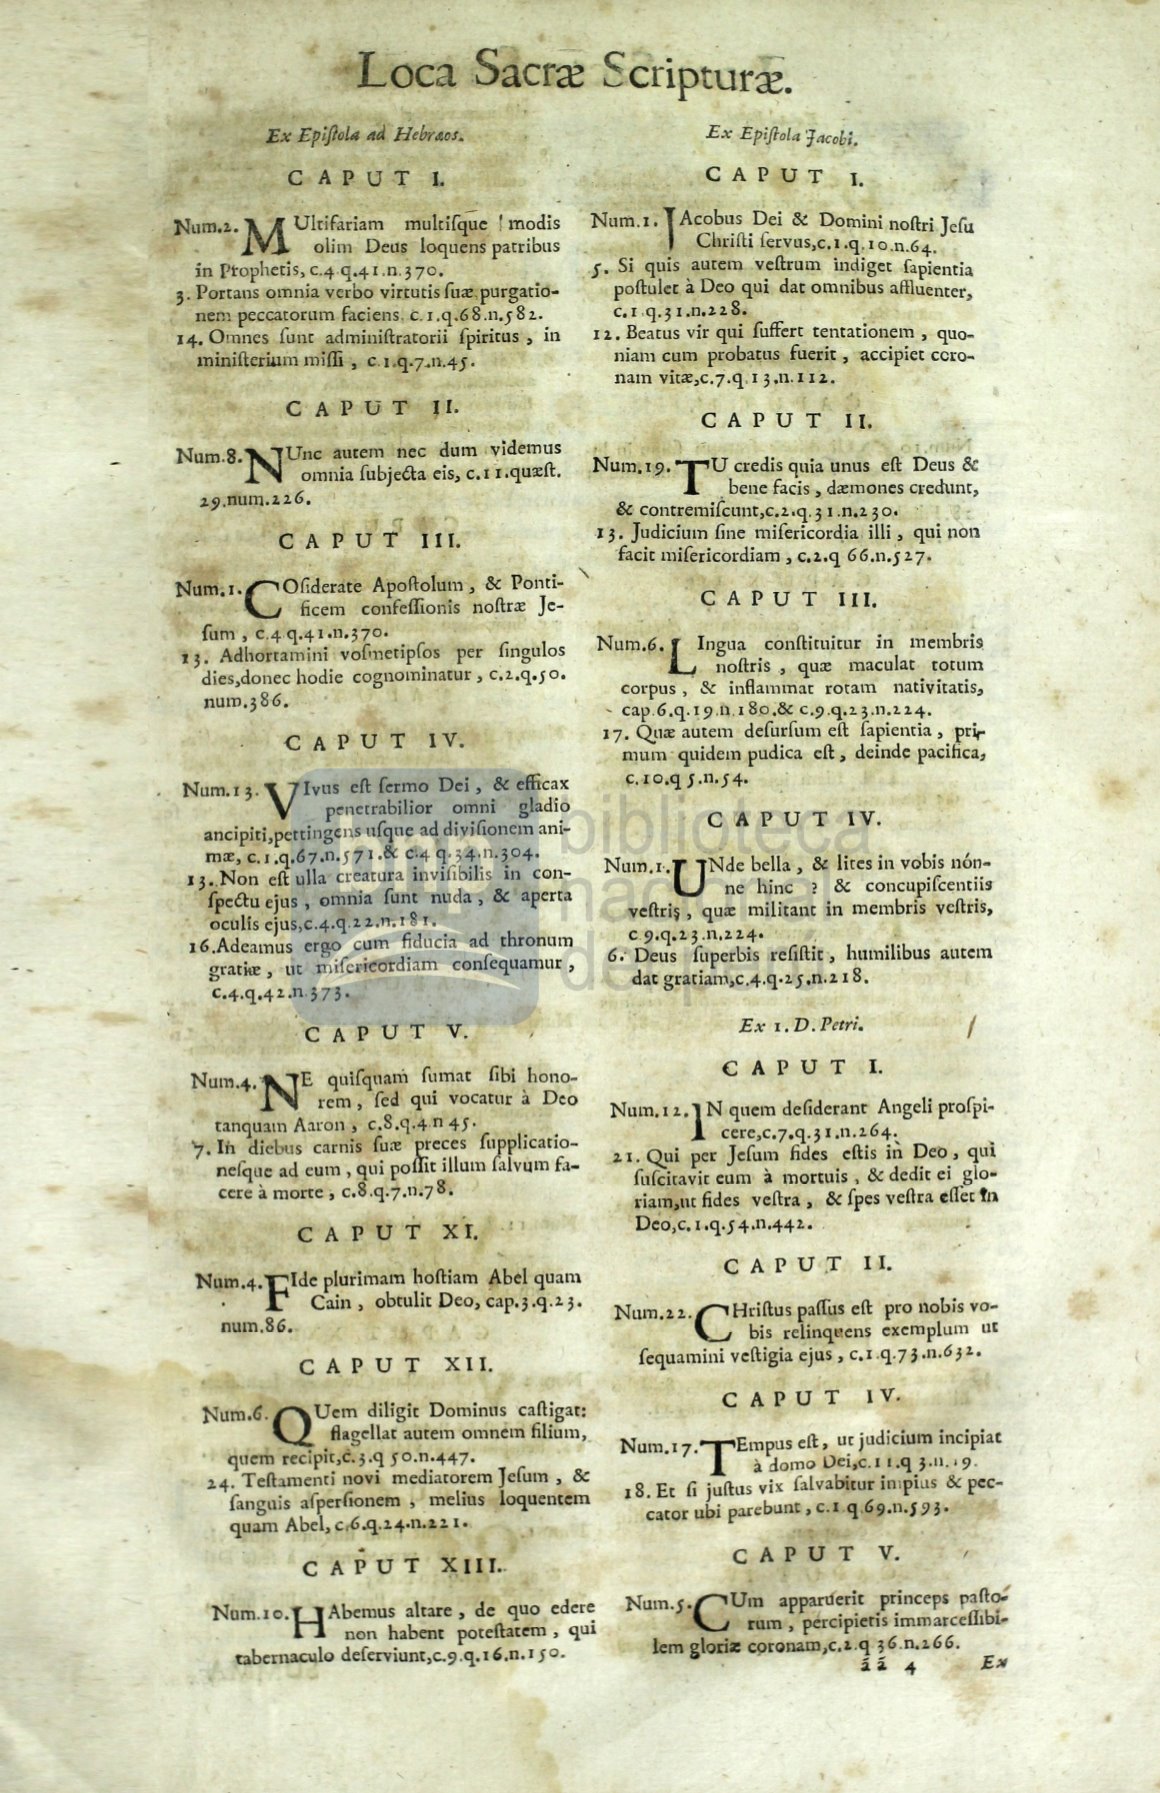 Loca Sacræ Scripturæ.
Ex Epiſtola ad Hebræos.
CAPUT I.
Num.2. MUltifariam multiſque modis
olim Deus loquens patribus
in Prophetis, c.4 q.41.n.370.
3. Portans omnia verbo virtutis ſuæ purgatio-
nem peccatorum faciens c.1.q.68.n.582.
14. Omnes ſunt adminiſtratorii ſpiritus, in
miniſterium miſſi, c.1.q.7.n.45.
CAPUT II.
Num.8. NUnc autem nec dum videmus
omnia ſubjecta eis, c.11.quæſt.
29.num.226.
CAPUT III.
Num.1. COſiderate Apoſtolum, & Ponti-
ficem confeſſionis noſtræ Je-
ſum, c.4 q.41.n.370.
13. Adhortamini voſmetipſos per ſingulos
dies,donec hodie cognominatur, c.2.q.50.
num.386.
CAPUT IV.
Num.13. VIvus eſt ſermo Dei, & efficax
penetrabilior omni gladio
ancipiti,pertingens uſque ad diviſionem ani-
mæ, c.1.q.67.n.571.& c.4 q.34.n.304.
13. Non eſt ulla creatura inviſibilis in con-
ſpectu ejus, omnia ſunt nuda, & aperta
oculis ejus,c.4.q.22.n.181.
16.Adeamus ergo cum fiducia ad thronum
gratiæ, ut miſericordiam conſequamur,
c.4.q.42.n 373.
CAPUT V.
Num.4. NE quiſquam ſumat ſibi hono-
rem, ſed qui vocatur à Deo
tanquam Aaron, c.8.q.4 n 45.
7. In diebus carnis ſuæ preces ſupplicatio-
neſque ad eum, qui poſſit illum ſalvum fa-
cere à morte, c.8.q.7.n.78.
CAPUT XI.
Num.4. FIde plurimam hoſtiam Abel quam
Cain, obtulit Deo, cap.3.q.23.
num.86.
CAPUT XII.
Num.6. QUem diligit Dominus caſtigat:
flagellat autem omnem filium,
quem recipit,c.3.q 50.n.447.
24. Teſtamenti novi mediatorem Jeſum, &
ſanguis aſperſionem, melius loquentem
quam Abel, c.6.q.24.n.221.
CAPUT XIII.
Num.10. HAbemus altare, de quo edere
non habent poteſtatem, qui
tabernaculo deſerviunt,c.9.q.16.n.150.
Ex Epiſtola Jacobi.
CAPUT I.
Num.1. JAcobus Dei & Domini noſtri Jeſu
Chriſti ſervus,c.1.q.10.n.64.
5. Si quis autem veſtrum indiget ſapientia
poſtulet à Deo qui dat omnibus affluenter,
c.1.q.31.n.228.
12. Beatus vir qui ſuffert tentationem, quo-
niam cum probatus fuerit, accipiet coro-
nam vitæ,c.7.q.13.n.112.
CAPUT II.
Num.19. TU credis quia unus eſt Deus &
bene facis, dæmones credunt,
& contremiſcunt,c.2.q.31.n.230.
13. Judicium ſine miſericordia illi, qui non
facit miſericordiam, c.2.q 66.n.527.
CAPUT III.
Num.6. LIngua conſtituitur in membris
noſtris, quæ maculat totum
corpus, & inflammat rotam nativitatis,
cap.6.q.19.n.180.& c.9.q.23.n.224.
17. Quæ autem deſurſum eſt ſapientia, pri-
mum quidem pudica eſt, deinde pacifica,
c.10.q 5.n.54.
CAPUT IV.
Num.1. UNde bella, & lites in vobis nón-
ne hinc? & concupiſcentiis
veſtris, quæ militant in membris veſtris,
c 9.q.23.n.224.
6. Deus ſuperbis reſiſtit, humilibus autem
dat gratiam,c.4.q.25.n.218.
Ex 1. D. Petri.
CAPUT I.
Num.12. IN quem deſiderant Angeli proſpi-
cere,c.7.q.31.n.264.
21. Qui per Jeſum fides eſtis in Deo, qui
ſuſcitavit eum à mortuis, & dedit ei glo-
riam,ut fides veſtra, & ſpes veſtra eſſet in
Deo,c.1.q.54.n.442.
CAPUT II.
Num.22. CHriſtus paſſus eſt pro nobis vo-
bis relinquens exemplum ut
ſequamini veſtigia ejus, c.1.q.73.n.632.
CAPUT IV.
Num.17. TEmpus eſt, ut judicium incipiat
à domo Dei,c.11.q 3.n.
18. Et ſi juſtus vix ſalvabitur impius & pec-
cator ubi parebunt, c.1.q.69.n.593.
CAPUT V.
Num.5. CUm apparuerit princeps paſto-
rum, percipietis immarceſſibi-
lem gloriæ coronam,c.2.q 36.n.266.
ã ã 4 Ex
biblioteca